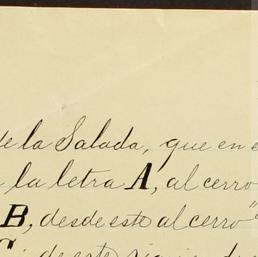 de la Salada, que en e
la letra A, al cerro
B, desde esto al cerro "
C; de este